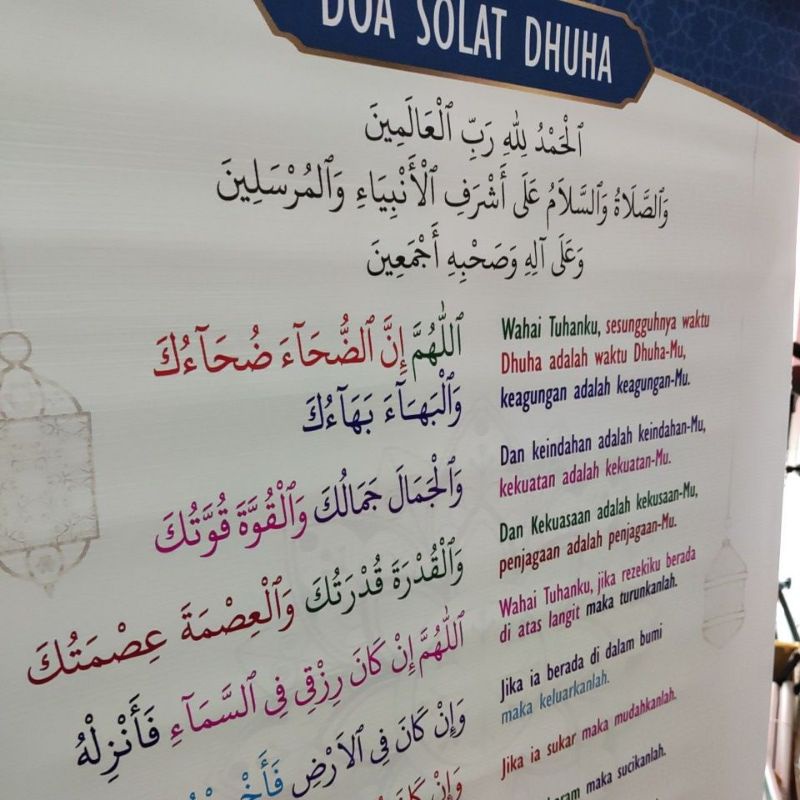 DOA SOLAT DHUHA
ٱلْحَمْدُ لِلّٰهِ رَبِّ ٱلْعَالَمِينَ
وَٱلصَّلَاةُ وَٱلسَّلَامُ عَلَى أَشْرَفِ ٱلْأَنْبِيَاءِ وَٱلْمُرْسَلِينَ
وَعَلَى آلِهِ وَصَحْبِهِ أَجْمَعِينَ
ٱللّٰهُمَّ إِنَّ ٱلضُّحَآءَ ضُحَآءُكَ
وَٱلْبَهَآءَ بَهَآءُكَ
وَٱلْجَمَالَ جَمَالُكَ وَٱلْقُوَّةَ قُوَّتُكَ
وَٱلْقُدْرَةَ قُدْرَتُكَ وَٱلْعِصْمَةَ عِصْمَتُكَ
ٱللّٰهُمَّ إِنْ كَانَ رِزْقِى فِى ٱلسَّمَآءِ فَأَنْزِلْهُ
وَإِنْ كَانَ فِى ٱلْاَرْضِ
وَإِنْ
Wahai Tuhanku, sesungguhnya waktu
Dhuha adalah waktu Dhuha-Mu,
keagungan adalah keagungan-Mu.
Dan keindahan adalah keindahan-Mu,
kekuatan adalah kekuatan-Mu.
Dan Kekuasaan adalah kekusaan-Mu,
penjagaan adalah penjagaan-Mu.
Wahai Tuhanku, jika rezekiku berada
di atas langit maka turunkanlah.
Jika ia berada di dalam bumi
maka keluarkanlah.
Jika ia sukar maka mudahkanlah.
maka sucikanlah.